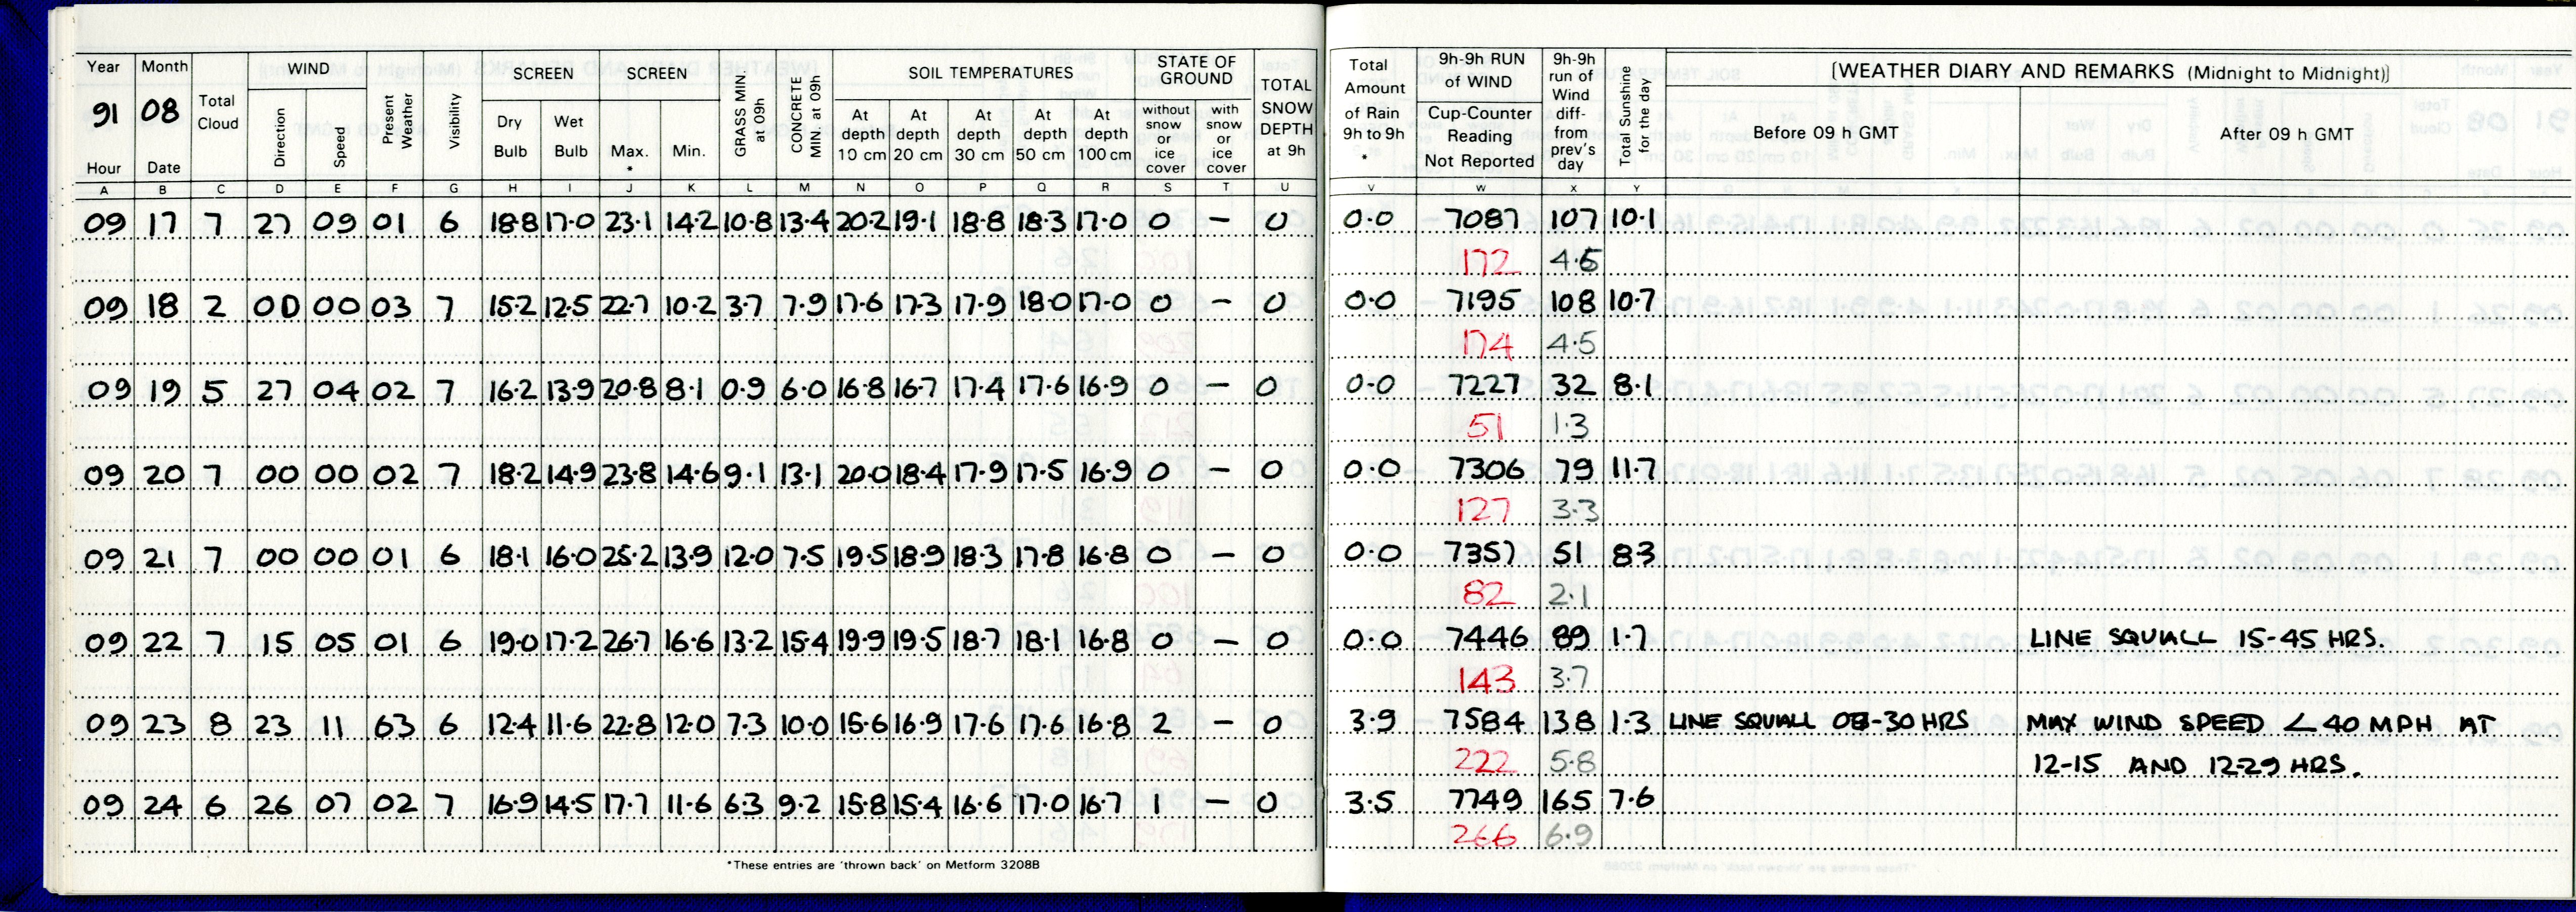 Year Month WIND SCREEN SCREEN SOIL TEMPERATURES STATE OF GROUND
91 08 Total Cloud Direction Speed Present Weather Visibility Dry Bulb Wet Bulb Max. * Min. GRASS MIN at 09h CONCRETE MIN at 09h At depth 10 cm At depth 20 cm At depth 30 cm At depth 50 cm At depth 100 cm without snow or ice cover with snow or ice cover TOTAL SNOW DEPTH at 9h
Hour Date
A B C D E F G H I J K L M N O P Q R S T U
09 17 7 27 09 01 6 18.8 17.0 23.1 14.2 10.8 13.4 20.2 19.1 18.8 18.3 17.0 0 – 0
09 18 2 00 00 03 7 15.2 12.5 22.7 10.2 3.7 7.9 17.6 17.3 17.9 18.0 17.0 0 – 0
09 19 5 27 04 02 7 16.2 13.9 20.8 8.1 0.9 6.0 16.8 16.7 17.4 17.6 16.9 0 – 0
09 20 7 00 00 02 7 18.2 14.9 23.8 14.6 9.1 13.1 20.0 18.4 17.9 17.5 16.9 0 – 0
09 21 7 00 00 01 6 18.1 16.0 25.2 13.9 12.0 7.5 19.5 18.9 18.3 17.8 16.8 0 – 0
09 22 7 15 05 01 6 19.0 17.2 26.7 16.6 13.2 15.4 19.9 19.5 18.7 18.1 16.8 0 – 0
09 23 8 23 11 63 6 12.4 11.6 22.8 12.0 7.3 10.0 15.6 16.9 17.6 17.6 16.8 2 – 0
09 24 6 26 07 02 7 16.9 14.5 17.7 11.6 6.3 9.2 15.8 15.4 16.6 17.0 16.7 1 – 0
*These entries are 'thrown back' on Metform 3208B
Total Amount of Rain 9h to 9h * 9h-9h RUN of WIND Cup-Counter Reading Not Reported 9h-9h run of Wind diff- from prev's day Total Sunshine for the day [WEATHER DIARY AND REMARKS (Midnight to Midnight)]
Before 09 h GMT After 09 h GMT
V W X Y
0.0 7087 107 10.1
172 4.5
0.0 7195 108 10.7
174 4.5
0.0 7227 32 8.1
51 1.3
0.0 7306 79 11.7
127 3.3
0.0 7357 51 8.3
82 2.1
0.0 7446 89 1.7 LINE SQUALL 15-45 HRS.
143 3.7
3.9 7584 138 1.3 LINE SQUALL 08-30 HRS MAX WIND SPEED < 40 MPH AT
222 5.8 12-15 AND 1229 HRS.
3.5 7749 165 7.6
266 6.9